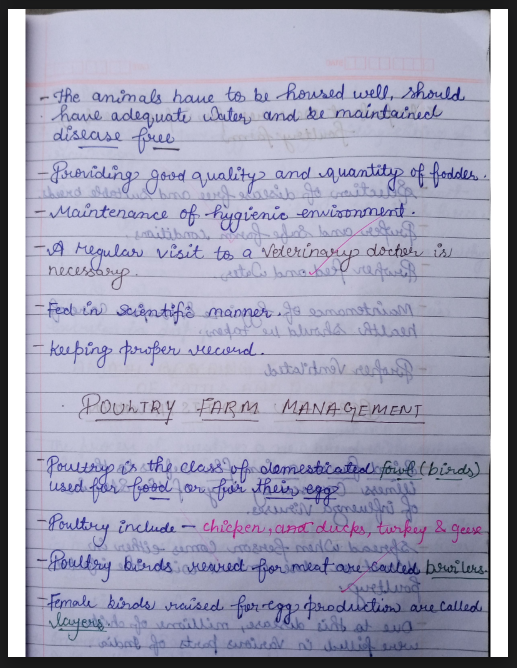 - The animals have to be housed well, should
have adequate water and be maintained
disease free
- Providing good quality and quantity of fodder.
- Maintenance of hygienic environment.
- A regular visit to a veterinary docter is
necessary.
- Fed in scientific manner.
- Keeping proper record.
POULTRY FARM MANAGEMENT
- Poultry is the class of domesticated fowl (birds)
used for food or for their egg
- Poultry include - chicken, and ducks, turkey & geese
- Poultry birds reared for meat are called browilers.
- Female birds raised for egg production are called
layers.